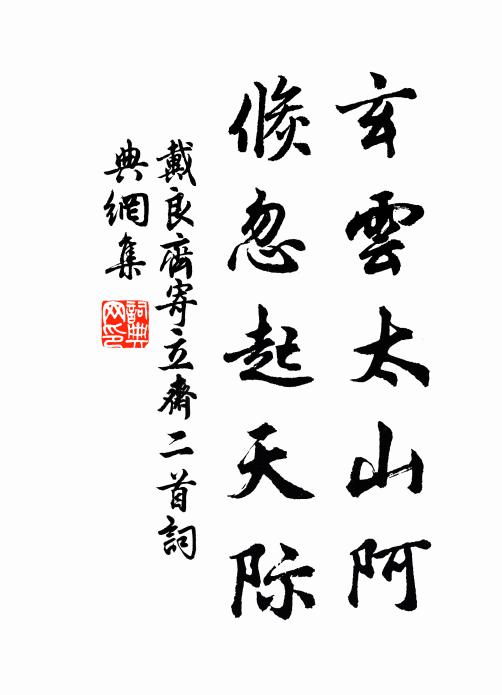 玄雲太山阿
倏忽起天际
戴良齊寄立齋二首詞
典網集
詞典網印